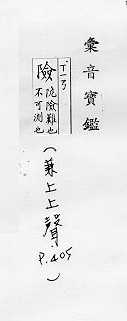 彙音寶鑑
ㄒㄧㄢˇ
險
險難也
不可測也
(兼上上聲
P.405)